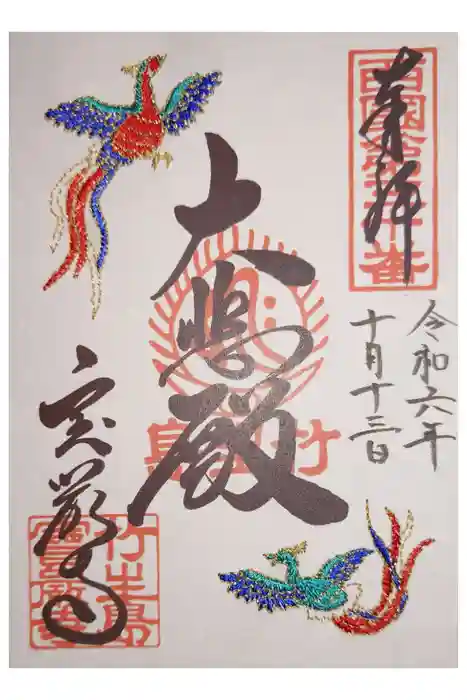 奉拝
西國第三十番
令和六年
十月十三日
大悲殿
竹生島
宝厳寺
竹生島
寶嚴寺